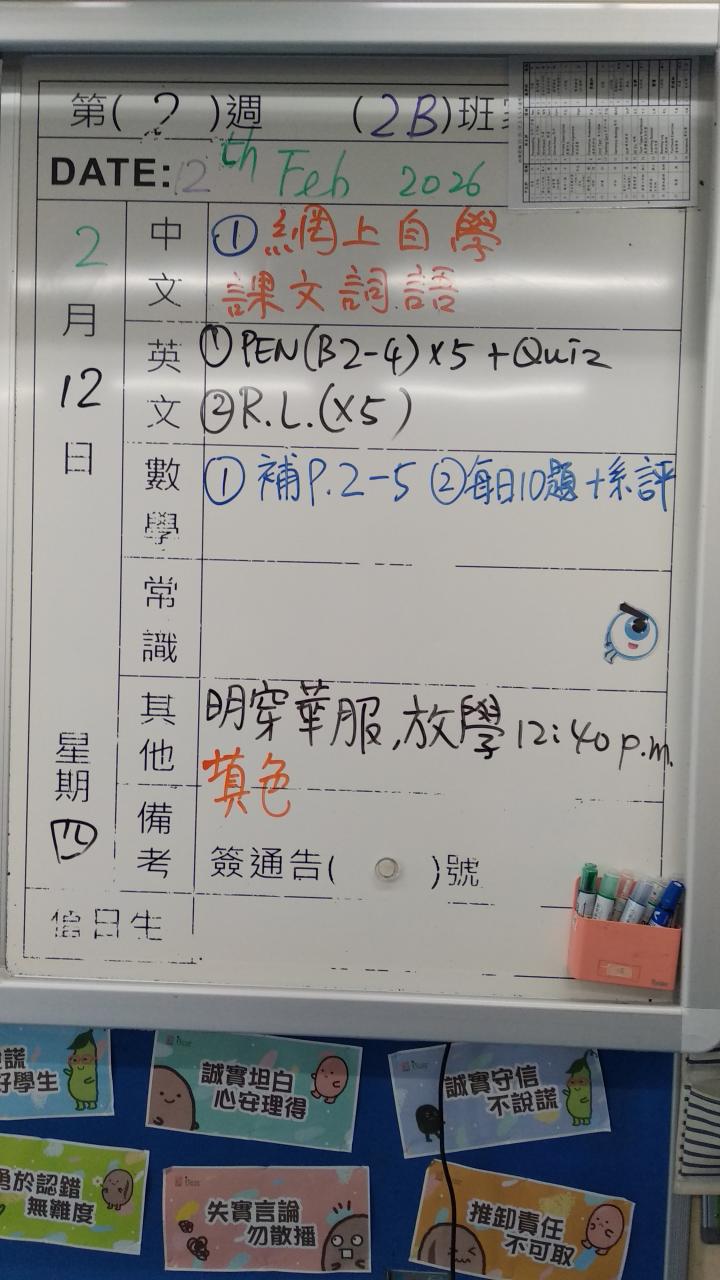 第( 2 )週 (2B)班
DATE: 12th Feb 2026
2月12日 星期四
中文 ① 網上自學
課文詞語
英文 ① PEN(B2-4)×5 + Quiz
② R.L.(×5)
數學 ① 補P.2-5 ② 每日10題+系評
常識
其他 明穿華服,放學12:40 p.m.
填色
備考 簽通告( )號
值日生
說謊
好學生
誠實坦白
心安理得
誠實守信
不說謊
勇於認錯
無難度
失實言論
勿散播
推卸責任
不可取